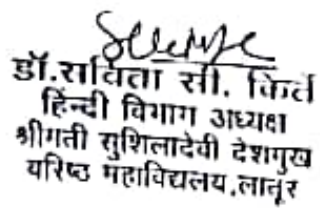 डॉ.सविता सी. किर्ते
हिंन्दी विभाग अध्यक्षा
श्रीमती सुशिलादेवी देशमुख
वरिष्ठ महाविद्यलय,लातूर